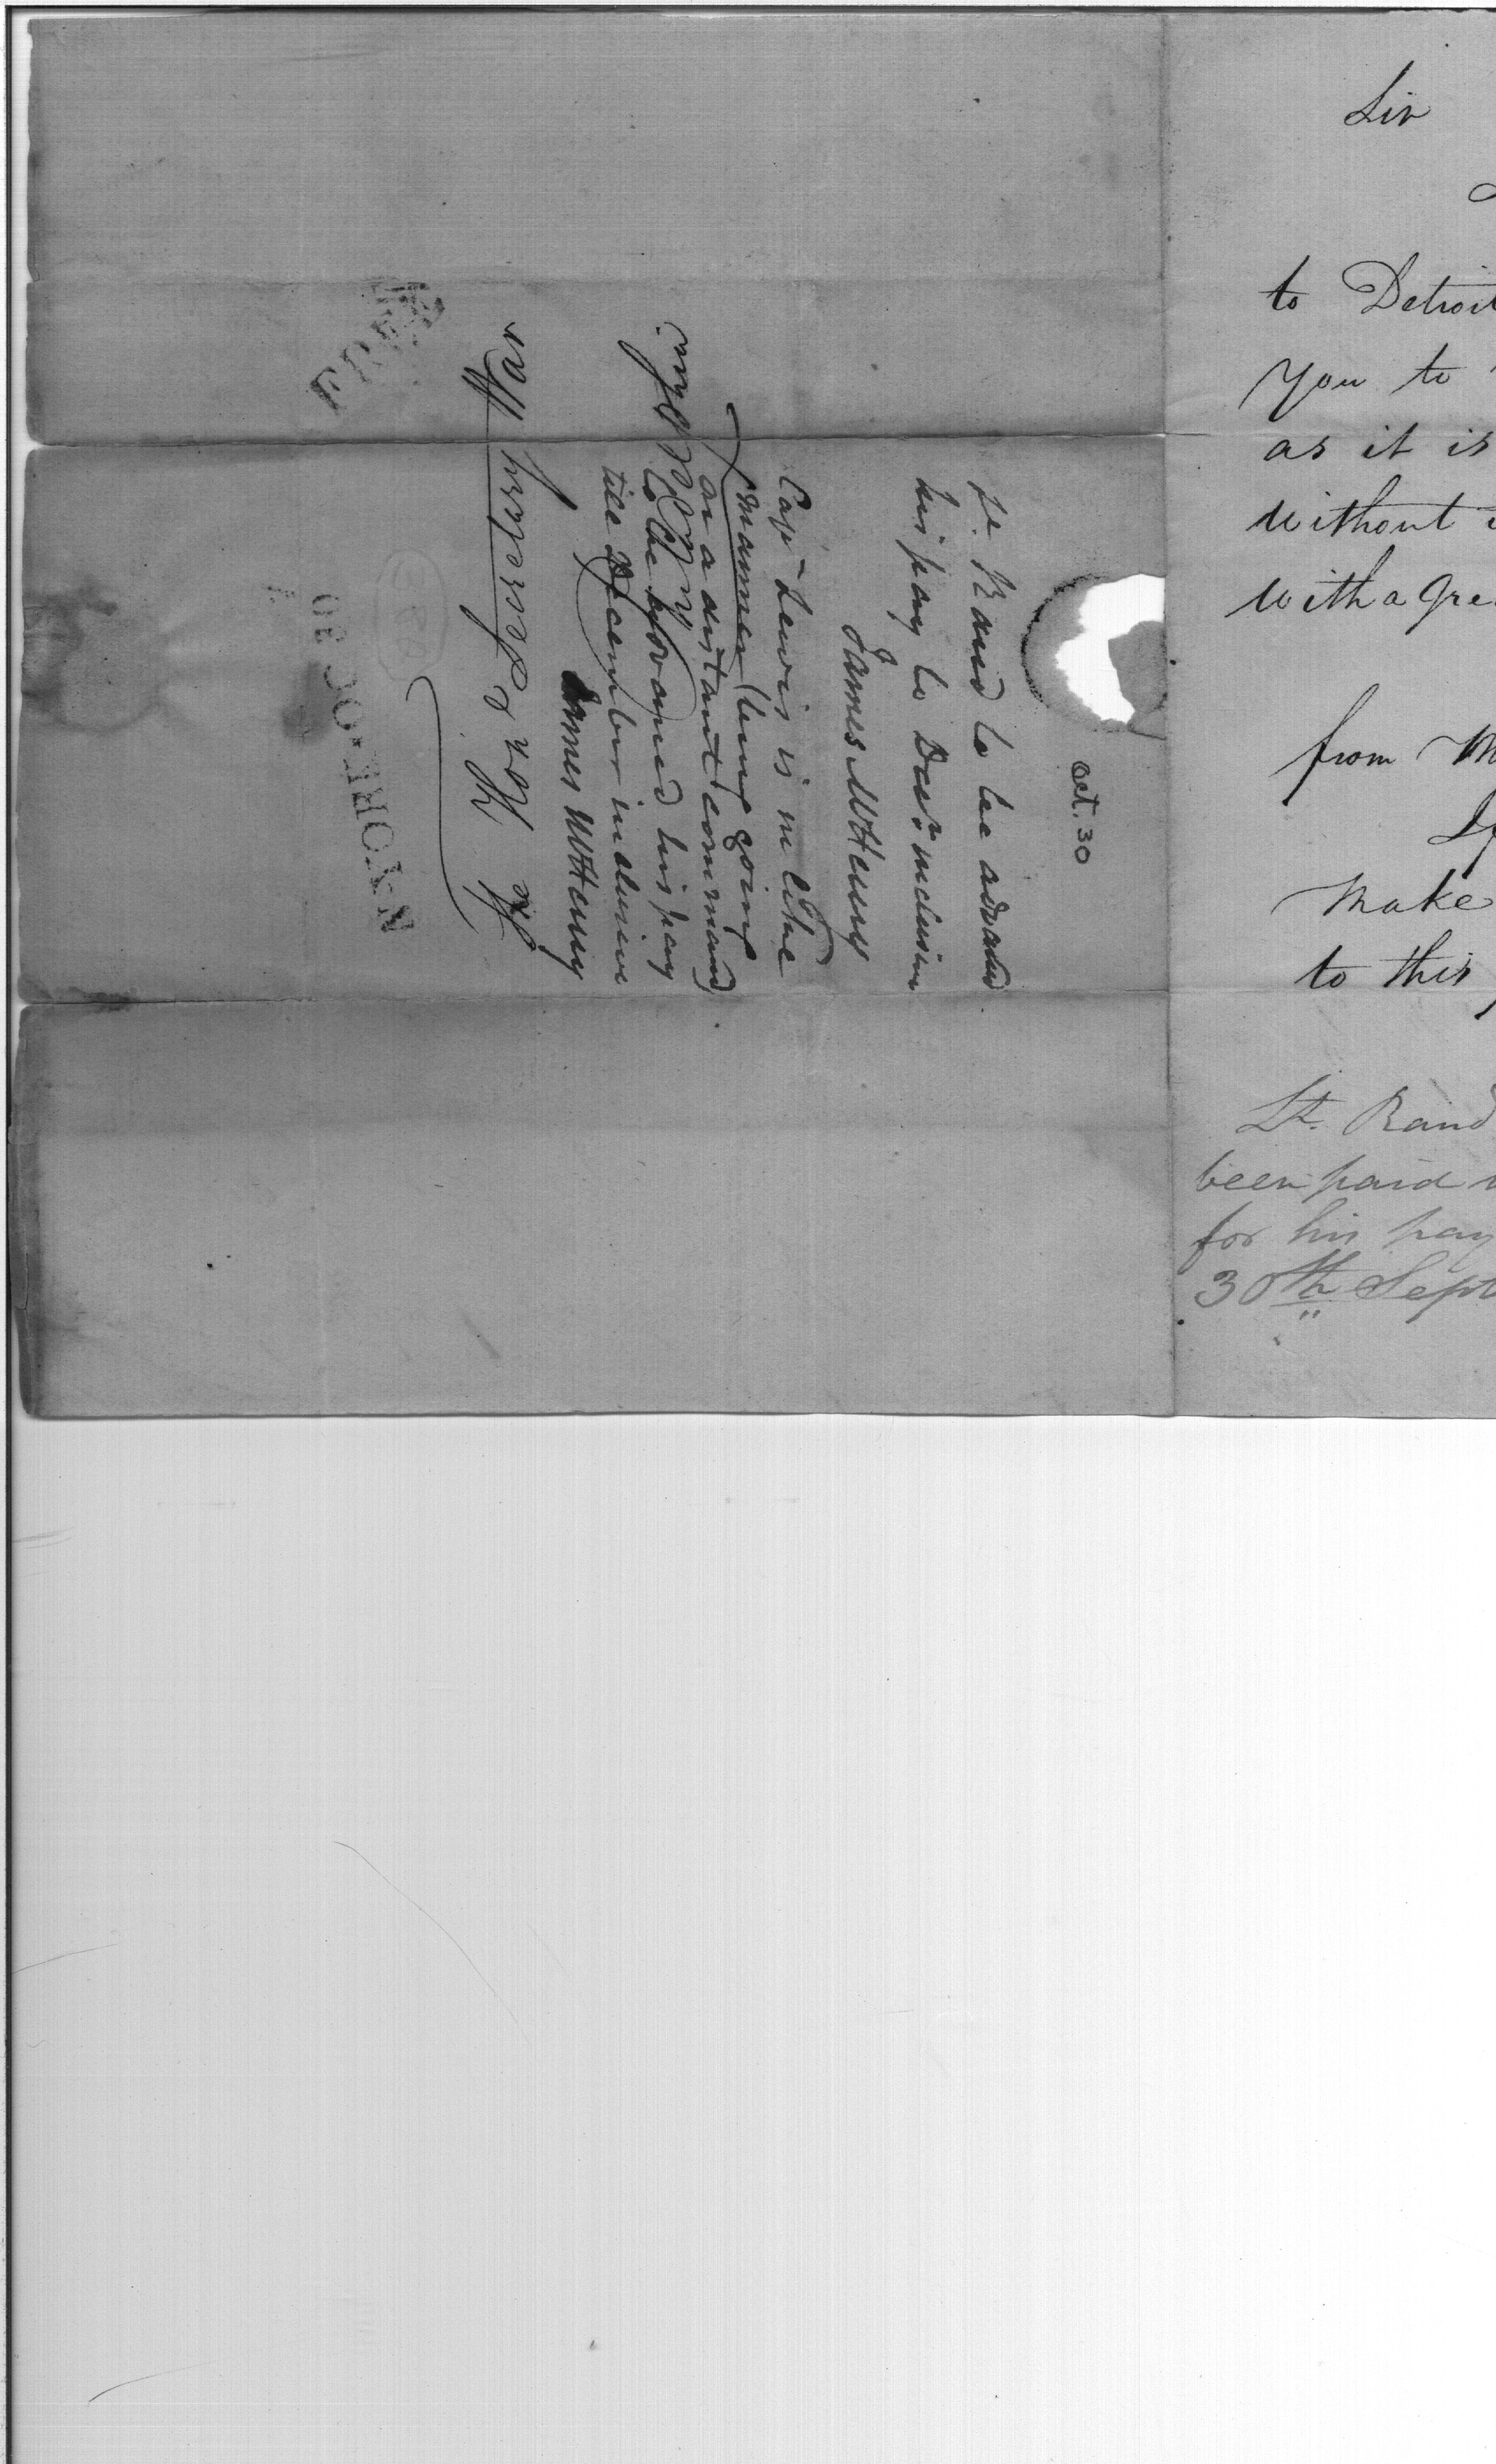 Lt. Rand to be advanced
his pay to Decr. inclusive
James McHenry
Cap Lewis is in like
manner (being going
on a distant command)
to be advanced his pay
till December inclusive
James McHenry
Oct. 30
The Hon
Secretary War
Phila.
N·YORK·OC 30
FREE
Sir
to Detroit
you to
as it is
without
with a gre
from
make
to this
Lt. Rand
been paid
for his pay
30th Sept